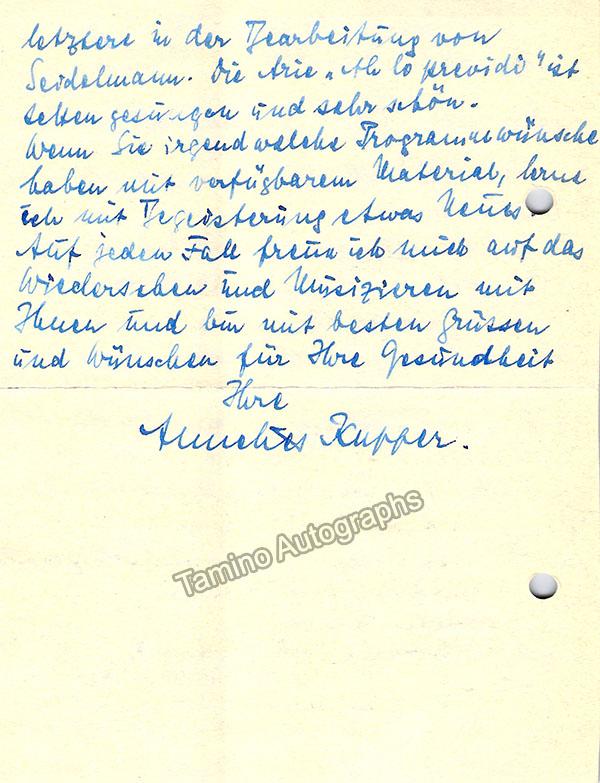 letztere in der Bearbeitung von
Seidelmann. Die Arie „Ah lo previdi" ist
selten gesungen und sehr schön.
Wenn Sie irgendwelche Programmwünsche
haben mit verfügbarem Material, lerne
ich mit Begeisterung etwas Neues.
Auf jeden Fall freue ich mich auf das
Wiedersehen und Musizieren mit
Ihnen und bin mit besten Grüssen
und Wünschen für Ihre Gesundheit
Ihre
Annelies Kupper.
Tamino Autographs